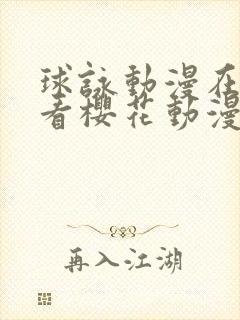 球詠動漫在
看櫻花動漫
再入江湖